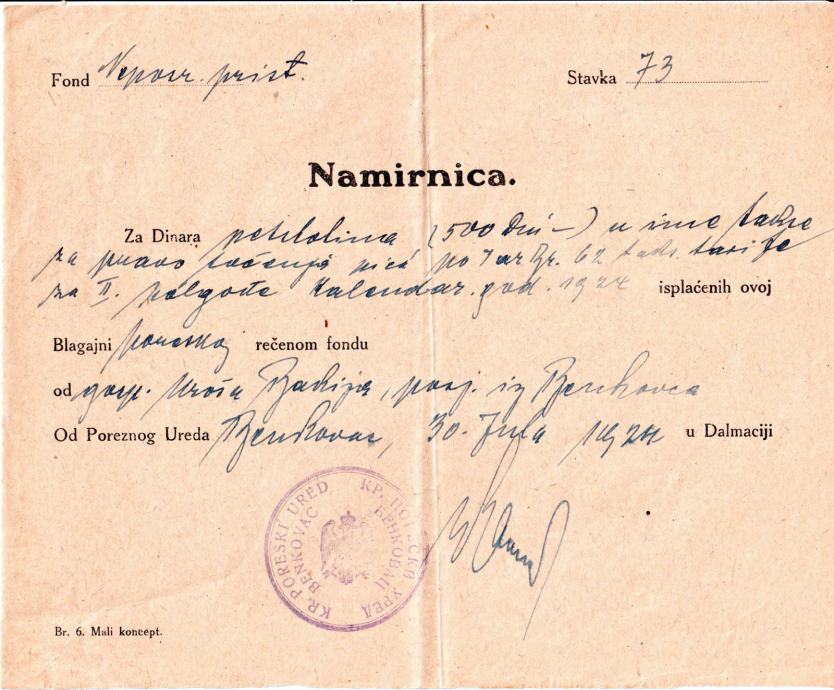 Fond Neposr. prist. Stavka 73
Namirnica.
Za Dinara petstotina (500 Din –) u ime takse
za pravo točenja pića po T. br. 62 taks. tarife
za II. polgođe kalendar. god. 1924 isplaćenih ovoj
Blagajni poreskoj rečenom fondu
od gosp. Uroša, posj. iz Benkovca
Od Poreznog Ureda Benkovac, 30. Jula 1924 u Dalmaciji
KR. PORESKI URED BENKOVAC
КР. ПОРЕСКИ УРЕД БЕНКОВАЦ
Br. 6. Mali koncept.